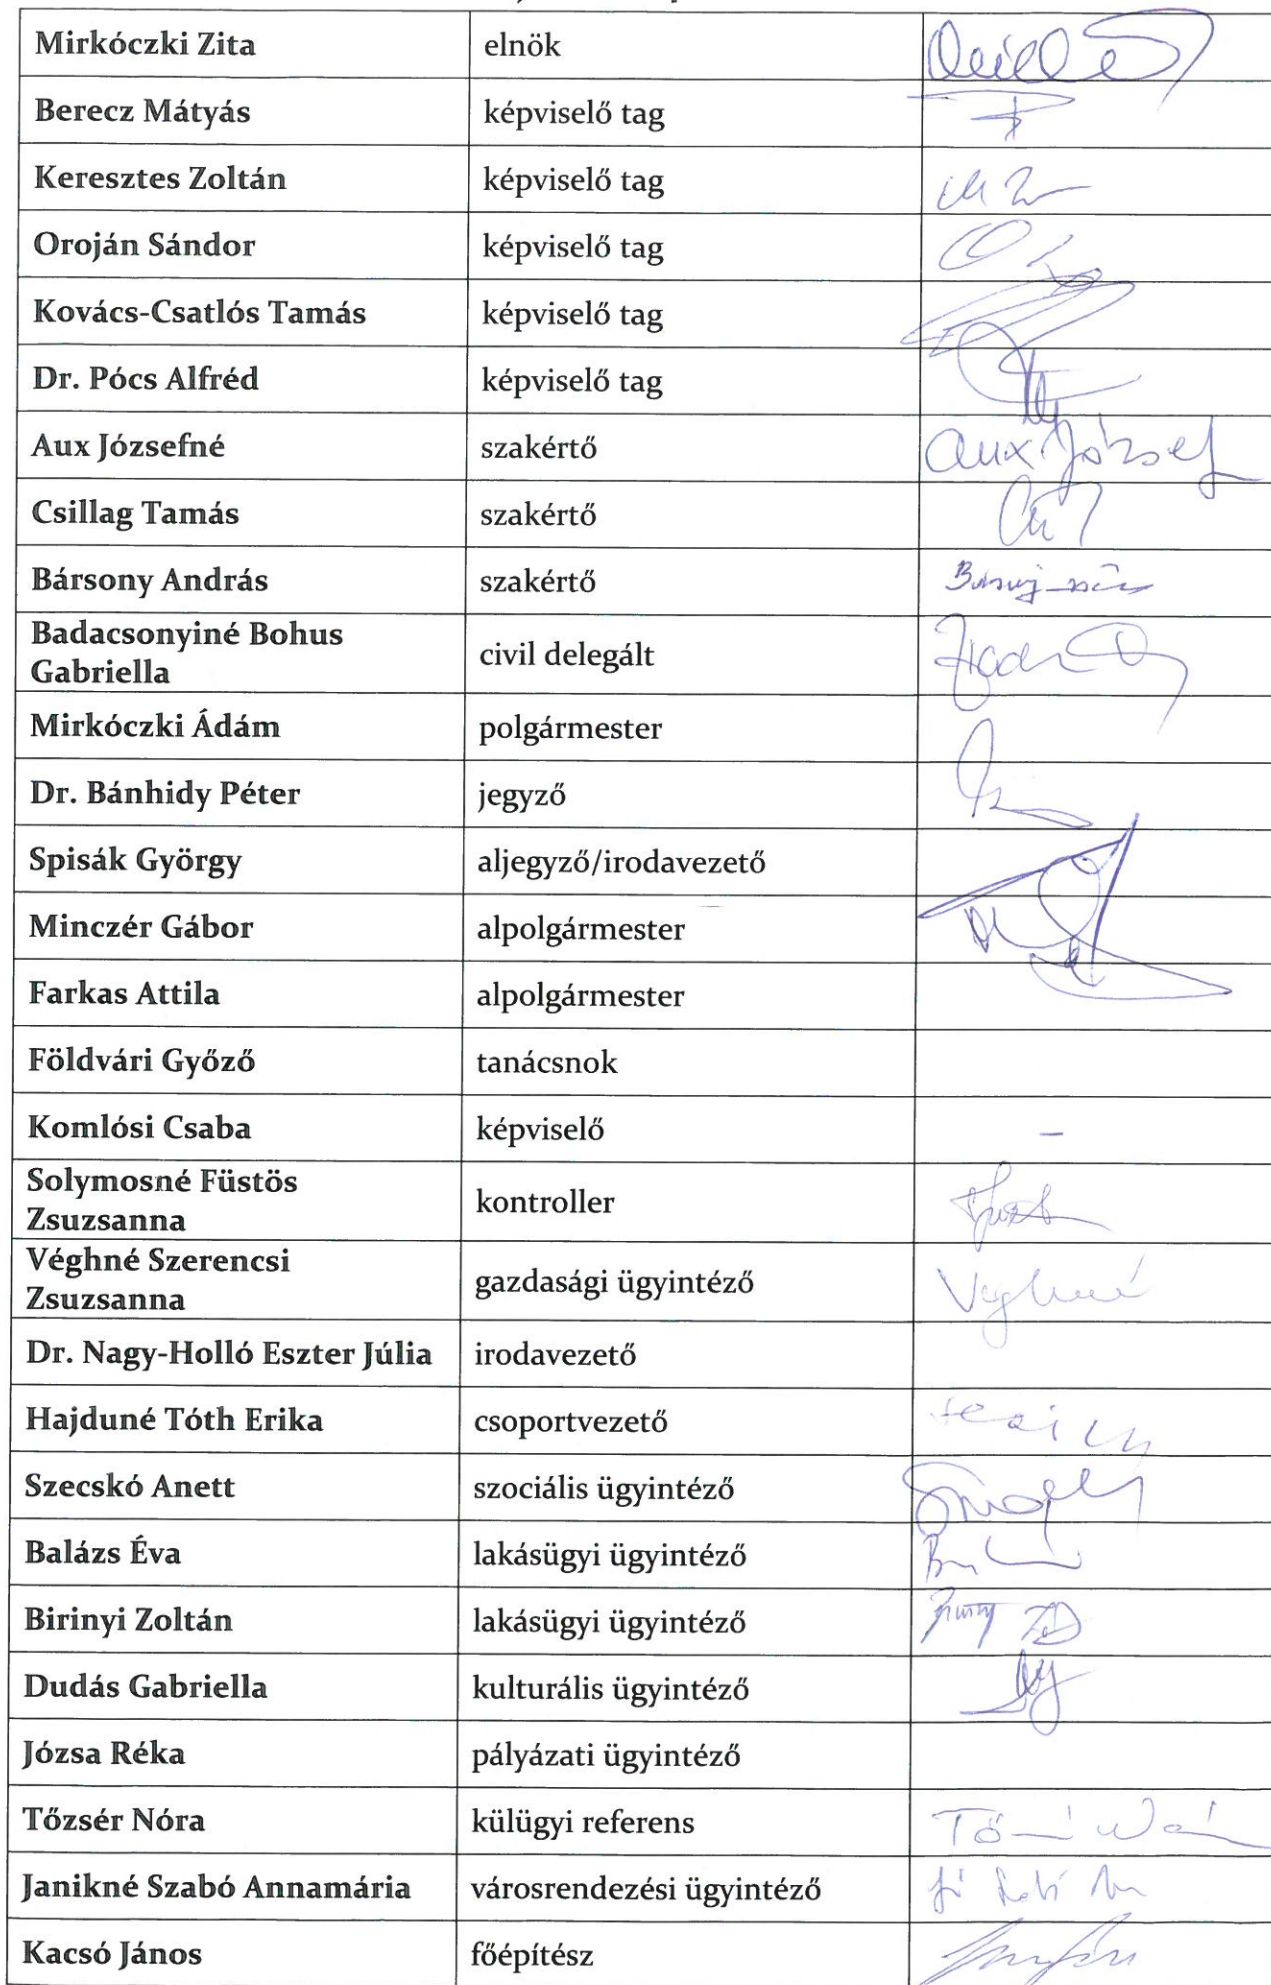 Mirkóczki Zita elnök
Berecz Mátyás képviselő tag
Keresztes Zoltán képviselő tag
Oroján Sándor képviselő tag
Kovács-Csatlós Tamás képviselő tag
Dr. Pócs Alfréd képviselő tag
Aux Józsefné szakértő Aux József
Csillag Tamás szakértő
Bársony András szakértő
Badacsonyiné Bohus
Gabriella civil delegált
Mirkóczki Ádám polgármester
Dr. Bánhidy Péter jegyző
Spisák György aljegyző/irodavezető
Minczér Gábor alpolgármester
Farkas Attila alpolgármester
Földvári Győző tanácsnok
Komlósi Csaba képviselő –
Solymosné Füstös
Zsuzsanna kontroller
Véghné Szerencsi
Zsuzsanna gazdasági ügyintéző Véghné
Dr. Nagy-Holló Eszter Júlia irodavezető
Hajduné Tóth Erika csoportvezető
Szecskó Anett szociális ügyintéző
Balázs Éva lakásügyi ügyintéző
Birinyi Zoltán lakásügyi ügyintéző
Dudás Gabriella kulturális ügyintéző
Józsa Réka pályázati ügyintéző
Tőzsér Nóra külügyi referens
Janikné Szabó Annamária városrendezési ügyintéző
Kacsó János főépítész